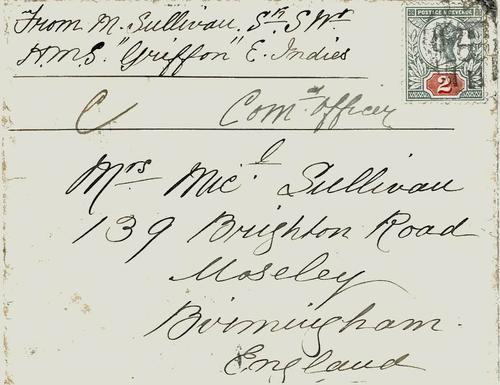 From M. Sullivan. Sh. S. Wd
H.M.S. "Griffon" E. Indies
POSTAGE & REVENUE
2d
C Comdg Officer
Mrs Micl Sullivan
139 Brighton Road
Moseley
Birmingham.
England